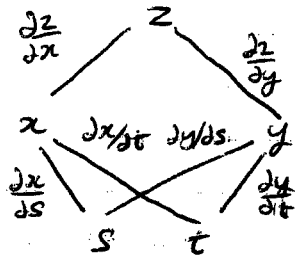 z
∂z/∂x ∂z/∂y
x ∂x/∂t ∂y/∂s y
∂x/∂s ∂y/∂t
s t